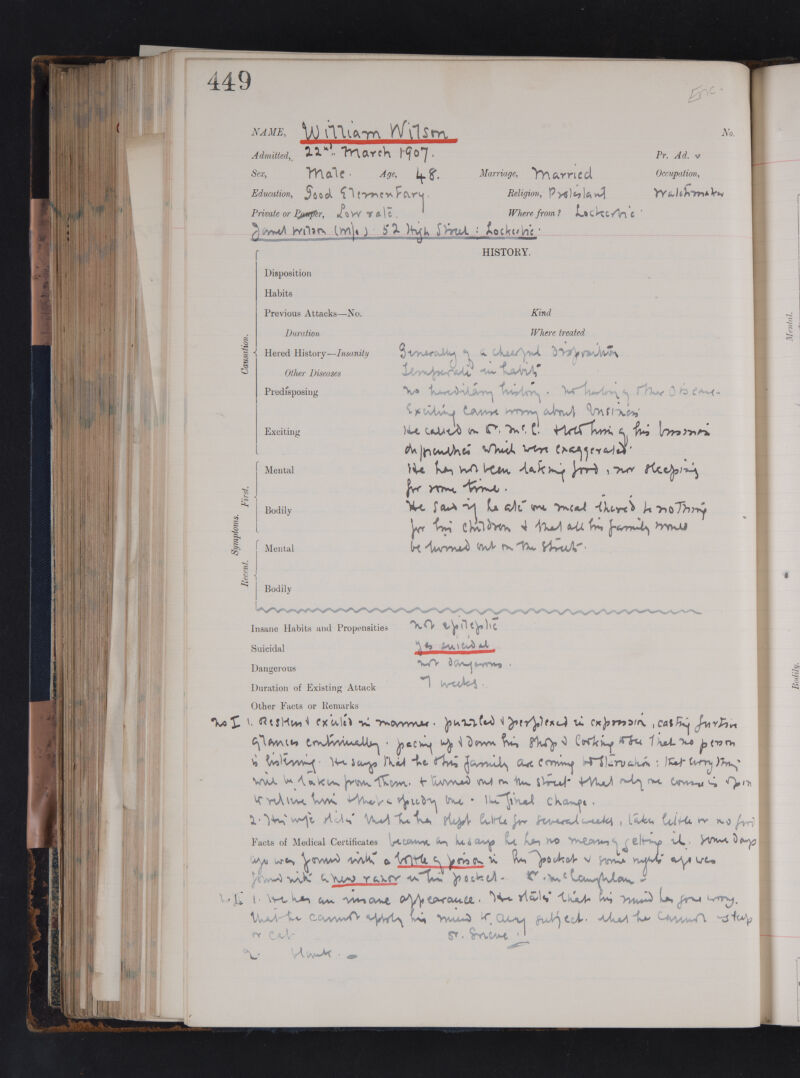 449
NAME, William Wilson No.
Admitted, 22nd. March 1907. Pr. Ad. v
Sex, Male. Age, 48. Marriage, Married Occupation,
Education, Good Elementary. Religion, Protestant Watchmaker
Private or Pauper, Low rate. Where from? Lockerbie
Wilson 52 High Street : Lockerbie
HISTORY.
Disposition
Habits
Previous Attacks—No. Kind
Duration Where treated
Causation.
Hered History—Insanity Generally of a cheerful Disposition
Other Diseases Temperate in habits
Predisposing No hereditary history. No history of other Disease.
Exciting Cause worry about Business
Exciting He called on Dr. & told him of his business
difficulties which were exaggerated.
Symptoms. First. Recent.
Mental He has not been taking food, nor sleeping
for some time.
Bodily He said if he ate one meal there'd be nothing
for his children & that all his family would
Mental be turned out on the Street.
Bodily
Insane Habits and Propensities not epileptic
Suicidal yes suicidal
Dangerous not dangerous.
Duration of Existing Attack 7 weeks.
Other Facts or Remarks
No I 1. Restless & excited in manner. puzzled & perplexed in expression, casting furtive
glances continually. pacing up & down his shop & looking to see that no person
is listening. He says that he & his family are coming to starvation : that everything
will be taken from them. & turned out on the street & that only one course is open
to relieve him & that a speedy one - the final change.
2. His wife states that he has slept little for several weeks, taken little or no food
Facts of Medical Certificates because as he says he has no means of getting it. Some days
ago was found with a bottle of poison in his pocket & some nights ago was
found with a new razor in his pocket. Dr. McLaughlan
No II 1. He has an insane appearance. He states that his mind has gone wrong.
that he cannot apply his mind to any subject. that he cannot sleep
or eat Dr.
2. blank.